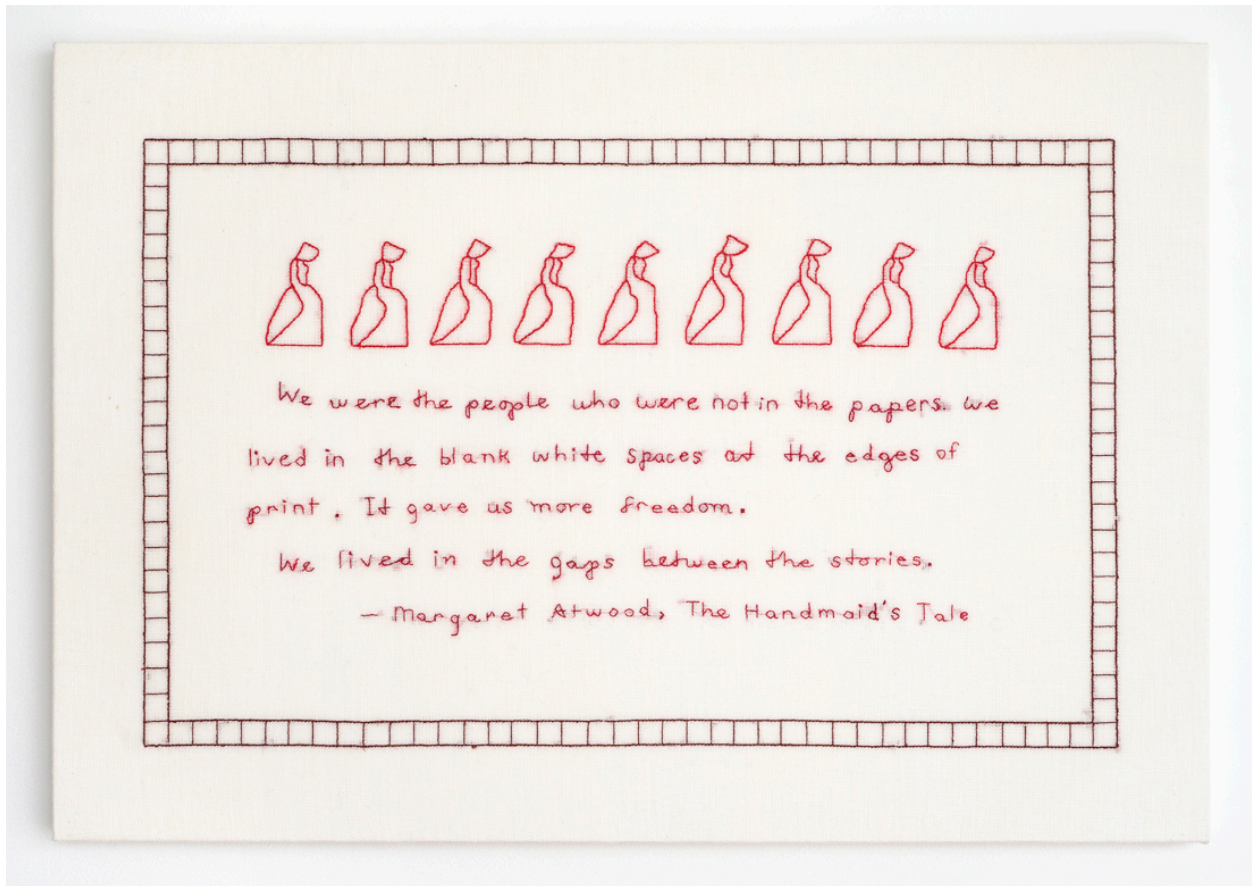 We were the people who were not in the papers. We
lived in the blank white spaces at the edges of
print. It gave us more freedom.
We lived in the gaps between the stories.
— Margaret Atwood, The Handmaid's Tale